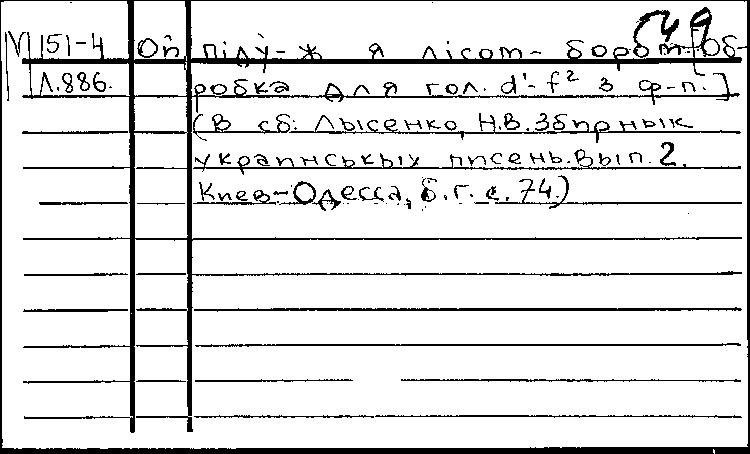 549
М 151-4 Ой піду-ж я лісом-бором [Об-
Л.886. робка для гол. d'-f² з ф-п.]
(В сб: Лысенко, Н.В. Збирнык
украинськых писень. Вып. 2.
Киев-Одесса, б.г. с. 74.)